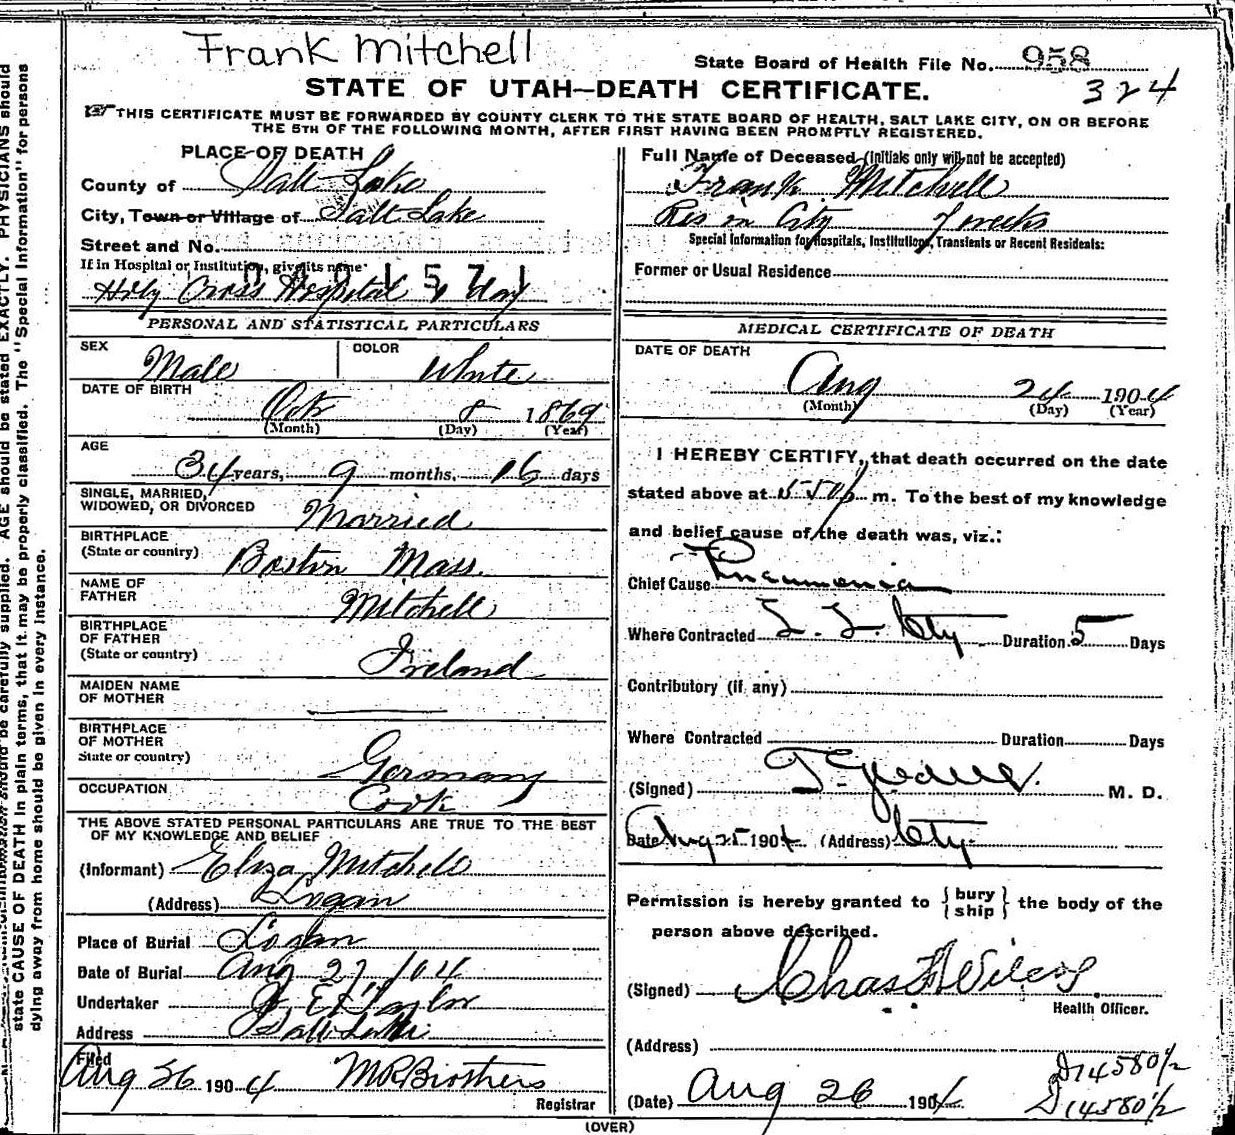 Frank Mitchell
State Board of Health File No. 958
STATE OF UTAH—DEATH CERTIFICATE.
324
☞ THIS CERTIFICATE MUST BE FORWARDED BY COUNTY CLERK TO THE STATE BOARD OF HEALTH, SALT LAKE CITY, ON OR BEFORE
THE 5TH OF THE FOLLOWING MONTH, AFTER FIRST HAVING BEEN PROMPTLY REGISTERED.
PLACE OF DEATH
County of Salt Lake
City, Town or Village of Salt Lake
Street and No.
If in Hospital or Institution, give its name
Holy Cross Hospital 1 Day
PERSONAL AND STATISTICAL PARTICULARS
SEX Male COLOR White
DATE OF BIRTH
Oct 8 1869
(Month) (Day) (Year)
AGE
34 years, 9 months, 16 days
SINGLE, MARRIED,
WIDOWED, OR DIVORCED Married
BIRTHPLACE
(State or country) Boston Mass.
NAME OF
FATHER Mitchell
BIRTHPLACE
OF FATHER
(State or country) Ireland
MAIDEN NAME
OF MOTHER
BIRTHPLACE
OF MOTHER
State or country) Germany
OCCUPATION Cook
THE ABOVE STATED PERSONAL PARTICULARS ARE TRUE TO THE BEST
OF MY KNOWLEDGE AND BELIEF
(Informant) Eliza Mitchell
(Address) Logan
Place of Burial Logan
Date of Burial Aug 27/04
Undertaker J. E. Taylor
Address Salt Lake
Filed
Aug 26 1904 M R Brothers
Registrar
Full Name of Deceased (Initials only will not be accepted)
Frank Mitchell
Res in City 7 weeks
Special Information for Hospitals, Institutions, Transients or Recent Residents:
Former or Usual Residence
MEDICAL CERTIFICATE OF DEATH
DATE OF DEATH
Aug 24 1904
(Month) (Day) (Year)
I HEREBY CERTIFY, that death occurred on the date
stated above at 5 50 p m. To the best of my knowledge
and belief cause of the death was, viz.:
Chief Cause Pneumonia
Where Contracted S. L. City Duration 5 Days
Contributory (if any)
Where Contracted Duration Days
(Signed) M. D.
Date Aug 25 1904 (Address) City
Permission is hereby granted to { bury ship } the body of the
person above described.
(Signed) Chas
Health Officer.
(Address)
(Date) Aug 26 1904
D 14580 1/2
D 14580 1/2
(OVER)
state CAUSE OF DEATH in plain terms, that it may be properly classified. The "Special Information" for persons
dying away from home should be given in every instance.
should be carefully supplied. AGE should be stated EXACTLY. PHYSICIANS should